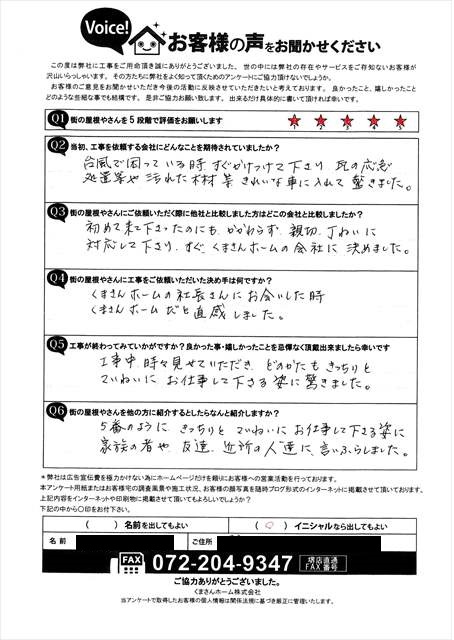 Voice!
お客様の声をお聞かせください
この度は弊社に工事をご用命頂き誠にありがとうございました。世の中には弊社の存在やサービスをご存知ないお客様が
沢山いらっしゃいます。その方たちに弊社をよく知って頂くためのアンケートにご協力頂けないでしょうか。
お客様のご意見をお聞かせいただき今後の活動に反映させていただきたいと考えております。良かったこと、嬉しかったこと
どのような些細な事でも結構です。是非ご協力お願い致します。出来るだけ具体的に書いて頂ければ幸いです。
Q1 街の屋根やさんを5段階で評価をお願いします ★ ★ ★ ★ ★
1 2 3 4 5
Q2 当初、工事を依頼する会社にどんなことを期待されていましたか?
台風で困っている時 すぐかけつけて下さり 瓦の応急
処置等や 汚れた木材等 きれいな車に入れて 驚きました。
Q3 街の屋根やさんにご依頼いただく際に他社と比較しました方はどこの会社と比較しましたか?
初めて来て下さったのにも かかわらず 親切、丁ねいに
対応して下さり、すぐ、くまさんホームの会社に 決めました。
Q4 街の屋根やさんに工事をご依頼いただいた決め手は何ですか?
くまさんホームの社長さんに お会いした時
くまさんホームだと直感しました。
Q5 工事が終わってみていかがですか?良かった事・嬉しかったことを忌憚なく頂戴出来ましたら幸いです
工事中 時々見せていただき、どのかたも きっちりと
ていねいに お仕事して下さる姿に 驚きました。
Q6 街の屋根やさんを他の方に紹介するとしたらなんと紹介しますか?
5番のように きっちりと ていねいに お仕事して下さる姿に
家族の者や 友達、近所の人達に 言いふらしました。
*弊社は広告宣伝費を極力かけない為にホームページだけを頼りにお客様への営業活動を行っております。
本アンケート用紙またはお客様宅の調査風景や施工状況、お客様の顔写真を随時ブログ形式のインターネットに掲載させて頂いております。
上記内容をインターネットや印刷物に掲載させて頂いてもよろしいでしょうか?
下記の中から〇印をお付け下さい。
( ) 名前を出してもよい ( ○ ) イニシャルなら出してもよい
名 前 ご住所
FAX 072-204-9347 堺店直通 FAX 番号
ご協力ありがとうございました。
くまさんホーム株式会社
当アンケートで取得したお客様の個人情報は関係法規に基づき厳正に管理いたします。